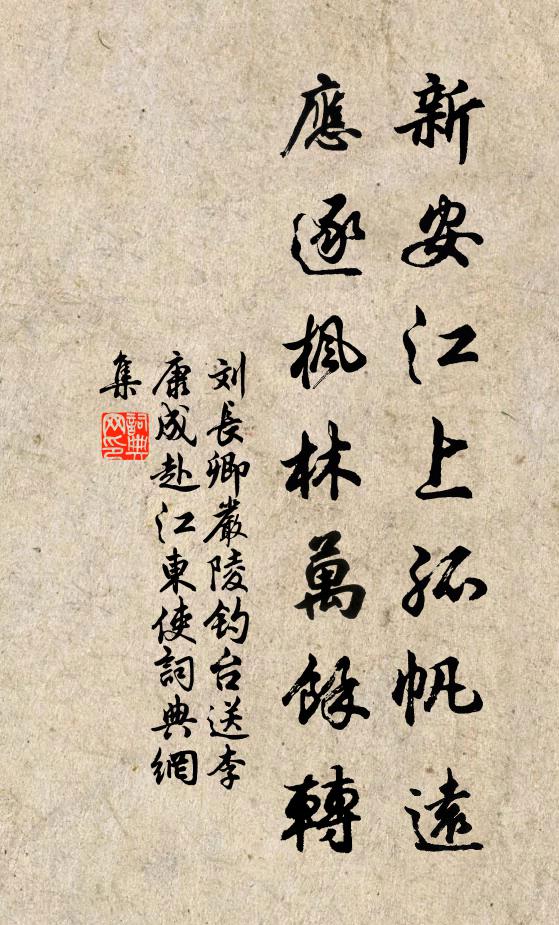 新安江上孤帆遠
應逐楓林萬餘轉
刘長卿嚴陵釣台送李
康成赴江東使詞典網
集
詞典网印